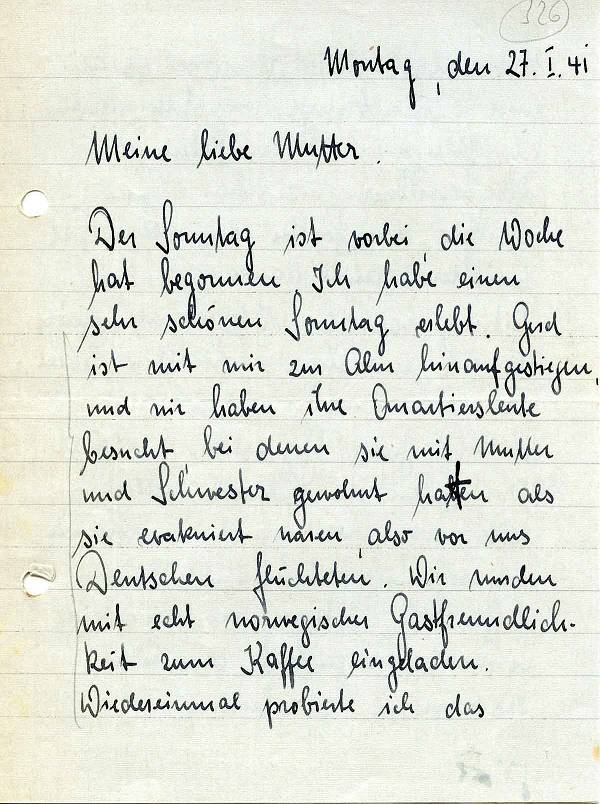 326
Montag, den 27. I. 41
Meine liebe Mutter.
Der Sonntag ist vorbei, die Woche
hat begonnen. Ich habe einen
sehr schönen Sonntag erlebt. Gerd
ist mit mir zur Alm hinaufgestiegen,
und wir haben ihre Quartiersleute
besucht bei denen sie mit Mutter
und Schwester gewohnt hatten als
sie evakuiert waren, also vor uns
Deutschen flüchteten. Wir wurden
mit echt norwegischer Gastfreundlich-
keit zum Kaffee eingeladen.
Wiedereinmal probierte ich das